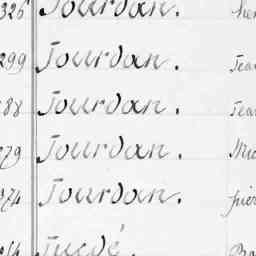 326 Jourdan.
299 Jourdan. Jea
88 Jourdan. Jea
279 Jourdan.
374 Jourdan. pier